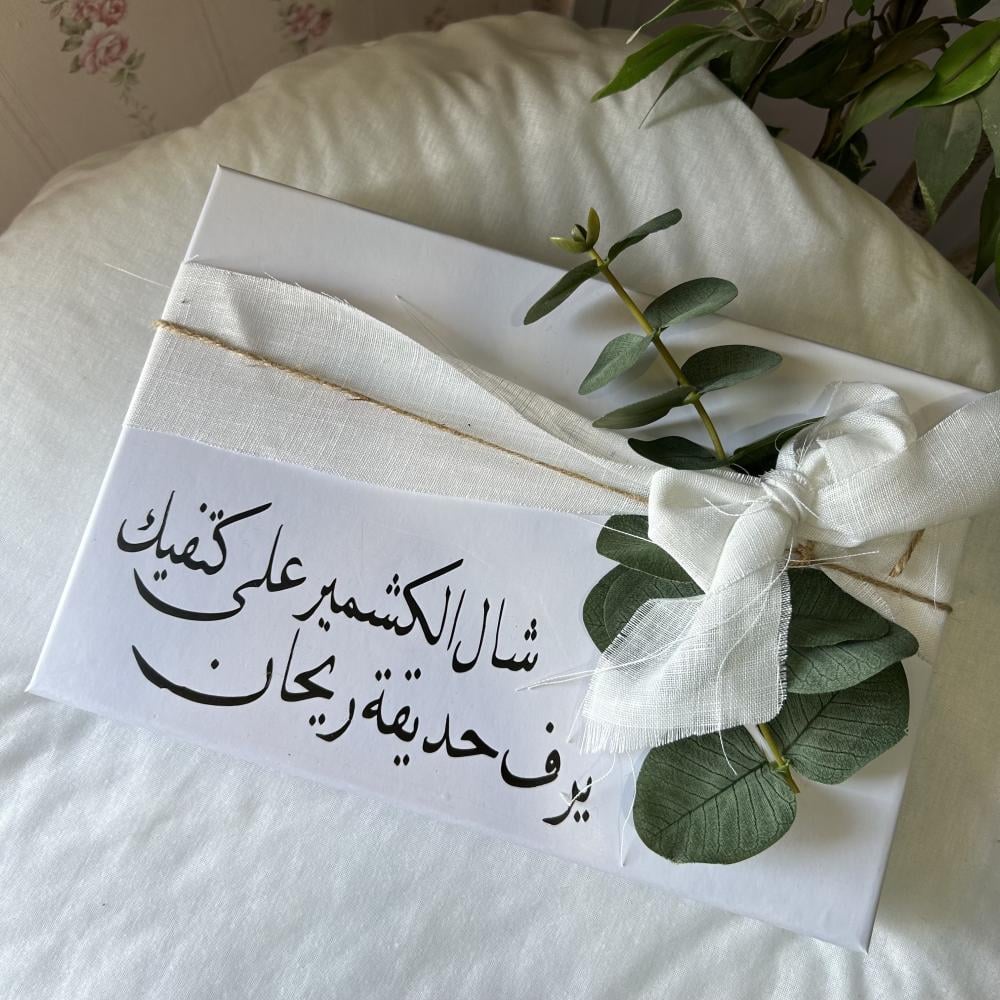 شال الكشمير على كتفيك
يرف حديقة ريحان